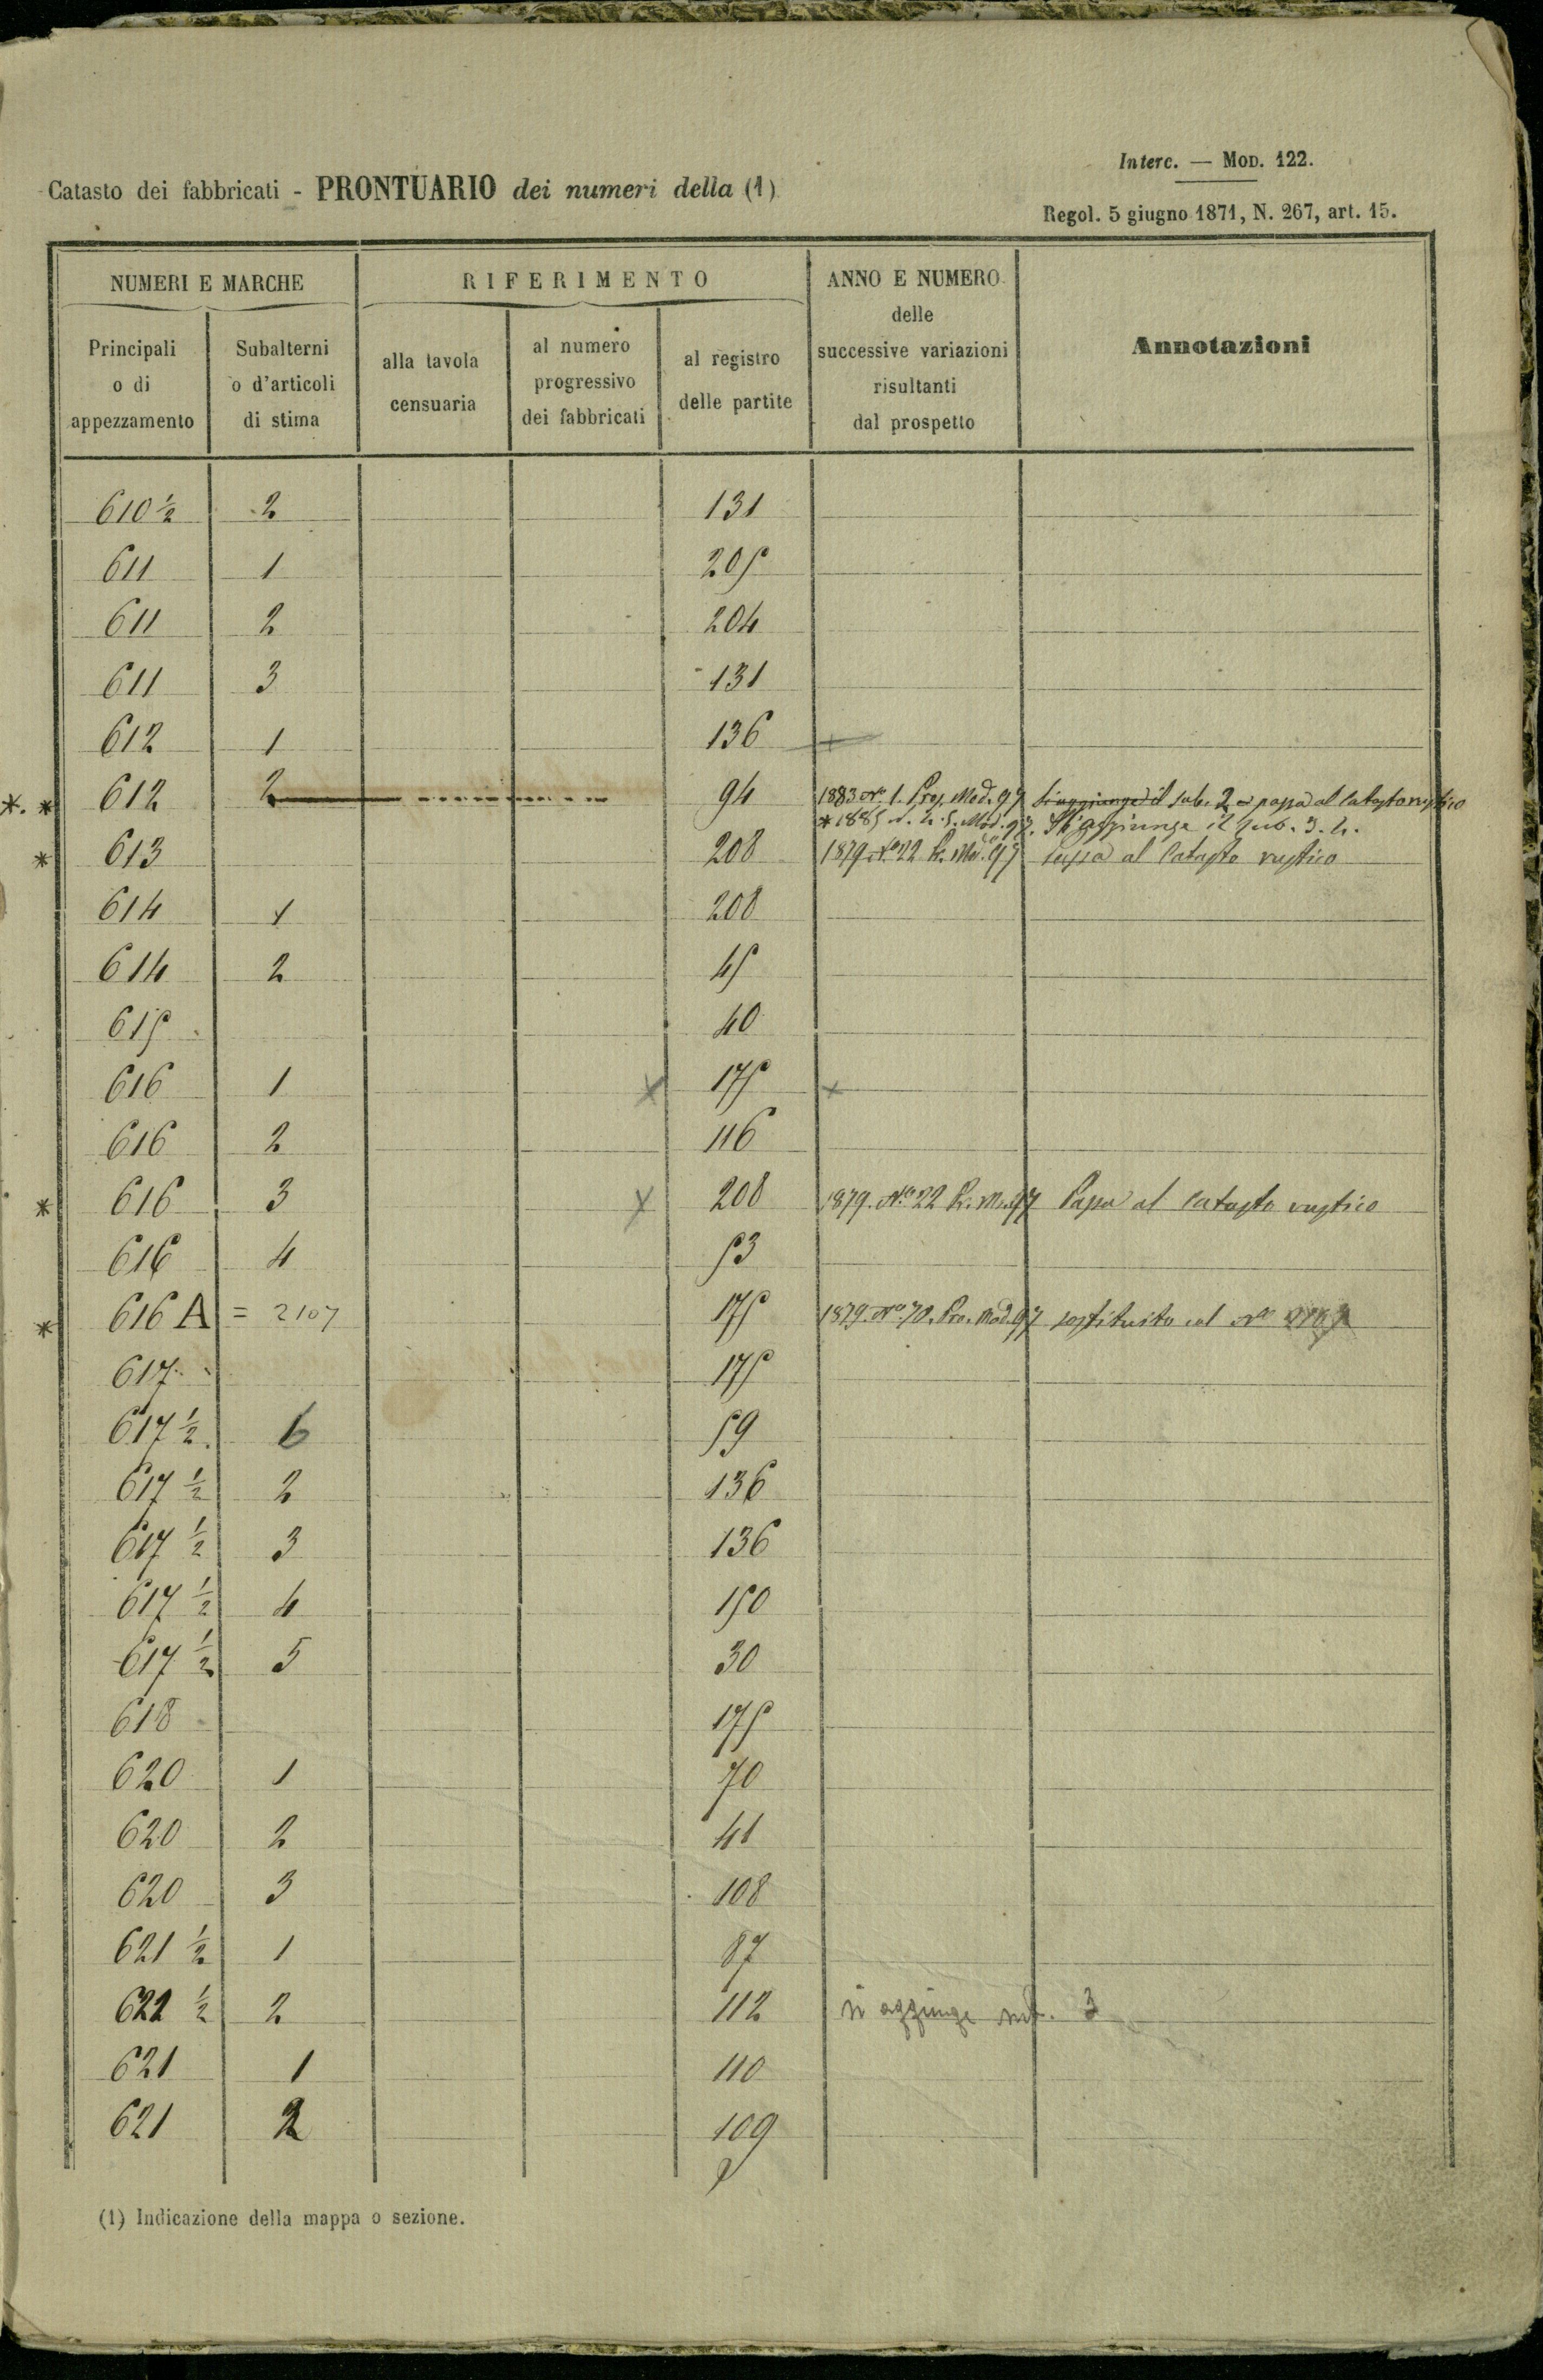 Interc. — Mod. 122.
Catasto dei fabbricati - PRONTUARIO dei numeri della (1)
Regol. 5 giugno 1871, N. 267, art. 15.
NUMERI E MARCHE
RIFERIMENTO
ANNO E NUMERO
delle
successive variazioni
risultanti
dal prospetto
Annotazioni
Principali
o di
appezzamento
Subalterni
o d'articoli
di stima
alla tavola
censuaria
al numero
progressivo
dei fabbricati
al registro
delle partite
610 ½ 2 131
611 1 205
611 2 204
611 3 131
612 1 136
*. * 612 2 94 1883 Nº 1. Pros. Mod. 97 Si aggiunge il sub. 2 passa al Catasto rustico
* 1885 N. 2. 5. Mod. 97. Si aggiunge il sub. 3. 4.
* 613 208 1879 Nº 22 Pr. Mod. 97 passa al Catasto rustico
614 1 208
614 2 45
615 40
616 1 175
616 2 116
* 616 3 208 1879. Nº 22 Pr. Mo. 97 Passa al Catasto rustico
616 4 53
* 616 A = 2107 175 1879. Nº 70. Pro. Mod. 97 sostituito col Nº
617 175
617 ½ 6 59
617 ½ 2 136
617 ½ 3 136
617 ½ 4 150
617 ½ 5 30
618 175
620 1 70
620 2 41
620 3 108
621 ½ 1 87
621 ½ 2 112 si aggiunge sub. 3
621 1 110
621 2 109
(1) Indicazione della mappa o sezione.